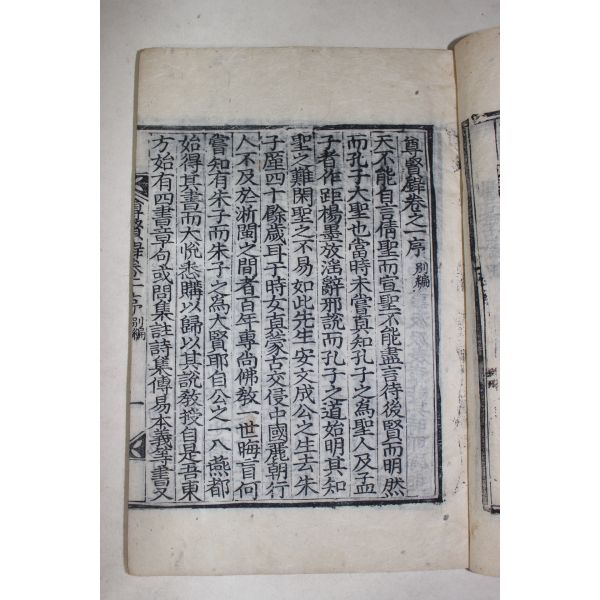 尊賢錄卷之一序 別編
天不能自言倩聖而宣聖不能盡言待後賢而明然
而孔子大聖也當時未嘗真知孔子之爲聖人及孟
子者作距楊墨放淫辭邪說而孔子之道始明其知
聖之難閑聖之不易如此先生安文成公之生去朱
子廑四十餘歲耳于時女真蒙古交侵中國麗朝行
人不及於浙閩之間者百年專尚佛敎一世晦盲何
嘗知有朱子而朱子之爲大賢耶自公之一入燕都
始得其書而大悅悉購以歸以其說敎授自是吾東
方始有四書章句或問集註詩集傳易本義至書又
尊賢錄卷之一序 別編